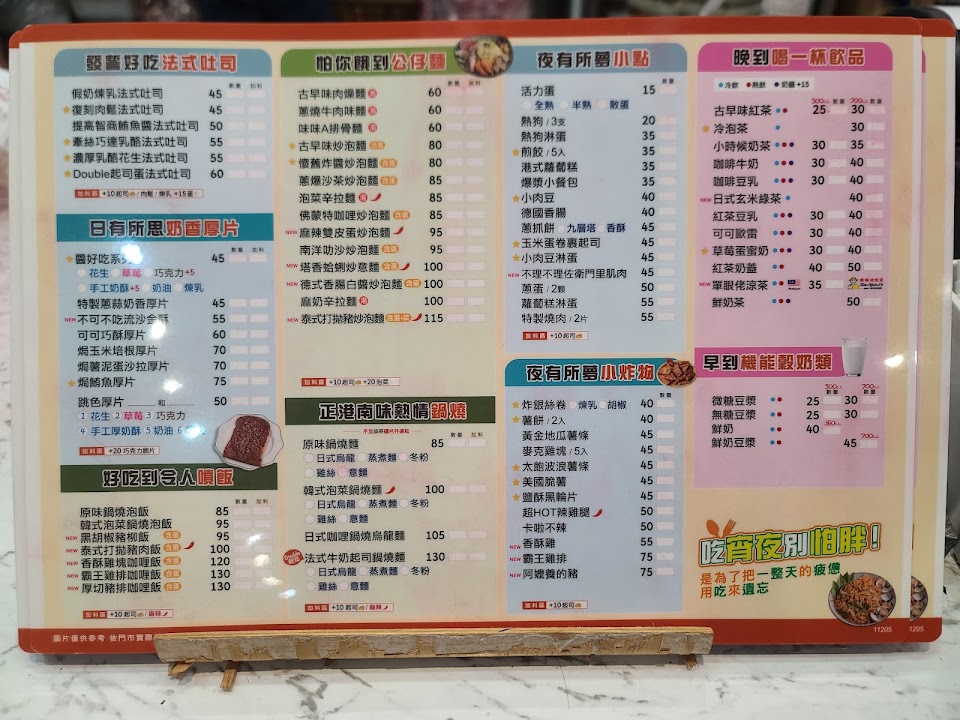 發誓好吃法式吐司
數量 加料
假奶煉乳法式吐司 45
復刻肉鬆法式吐司 45
提高智商鮪魚醬法式吐司 50
牽絲巧達乳酪法式吐司 55
濃厚乳酪花生法式吐司 55
Double起司蛋法式吐司 60
加料區 +10起司 / 肉鬆 / 煉乳 +15蛋
日有所思奶香厚片
數量 加料
醬好吃系列 45
花生 草莓 巧克力+5
手工奶酥+5 奶油 煉乳
特製蔥蒜奶香厚片 45
NEW 不可不吃流沙金酥 55
可可巧酥厚片 60
焗玉米培根厚片 70
焗薯泥蛋沙拉厚片 70
焗鮪魚厚片 75
跳色厚片 和 50
1 花生 2 草莓 3 巧克力
4 手工厚奶酥 5 奶油 6
加料區 +20 巧克力脆片
好吃到令人噴飯
數量 加料
原味鍋燒泡飯 85
韓式泡菜鍋燒泡飯 95
NEW 黑胡椒豬柳飯 含蛋 95
NEW 泰式打拋豬肉飯 含蛋 100
NEW 香酥雞塊咖哩飯 含蛋 120
NEW 霸王雞排咖哩飯 含蛋 130
NEW 厚切豬排咖哩飯 含蛋 130
加料區 +10起司 / 麻辣
怕你餓到公仔麵
數量 加料
古早味肉燥麵 湯 60
蔥燒牛肉味麵 湯 60
味味A排骨麵 湯 60
古早味炒泡麵 含蛋 80
懷舊炸醬炒泡麵 含蛋 80
蔥爆沙茶炒泡麵 含蛋 85
泡菜辛拉麵 湯 85
佛蒙特咖哩炒泡麵 含蛋 85
NEW 麻辣雙皮蛋炒泡麵 95
南洋叻沙炒泡麵 含蛋 95
NEW 塔香蛤蜊炒意麵 含蛋 100
NEW 德式香腸白醬炒泡麵 含蛋 100
麻奶辛拉麵 湯 100
NEW 泰式打拋豬炒泡麵 115
加料區 +10起司 +20泡菜
正港南味熱情鍋燒
數量 加料
原味鍋燒麵 85
日式烏龍 蒸煮麵 冬粉
雞絲 意麵
韓式泡菜鍋燒麵 100
日式烏龍 蒸煮麵 冬粉
雞絲 意麵
日式咖哩鍋燒烏龍麵 105
法式牛奶起司鍋燒麵 130
日式烏龍 蒸煮麵 冬粉
雞絲 意麵
加料區 +10起司 / 麻辣
夜有所夢小點
數量
活力蛋 15
全熟 半熟 散蛋
熱狗 / 3支 20
熱狗淋蛋 35
煎餃 / 5入 35
港式蘿蔔糕 35
爆漿小餐包 35
小肉豆 40
德國香腸 40
蔥抓餅 九層塔 香酥 45
玉米蛋卷裹起司 45
小肉豆淋蛋 45
NEW 不理不理佐衛門里肌肉 45
蔥蛋 / 2顆 50
蘿蔔糕淋蛋 55
特製燒肉 / 2片 55
加料區 +10起司
夜有所夢小炸物
數量
炸銀絲卷 煉乳 胡椒 40
薯餅 / 2入 40
黃金地瓜薯條 45
麥克雞塊 / 5入 45
太飽波浪薯條 45
美國脆薯 45
鹽酥黑輪片 45
超HOT辣雞腿 50
卡啦不辣 50
NEW 香酥雞 55
NEW 霸王雞排 75
NEW 阿嬤養的豬 75
加料區 +10起司
晚到喝一杯飲品
冷飲 熱飲 奶蓋+15
500cc 數量 700cc 數量
古早味紅茶 25 30
冷泡茶 30
小時候奶茶 30 35
咖啡牛奶 30 40
咖啡豆乳 30 40
NEW 日式玄米綠茶 40
紅茶豆乳 30 40
可可歐雷 30 40
草莓蛋蜜奶 30 40
紅茶奶蓋 40 50
NEW 單眼佬涼茶 35
鮮奶茶 50
早到機能穀奶類
500cc 數量 700cc 數量
微糖豆漿 25 30
無糖豆漿 25 30
鮮奶 40 360cc
鮮奶豆漿 45 700cc
吃宵夜別怕胖!
是為了把一整天的疲憊
用吃來遺忘
圖片僅供參考 依門市實際
11205
1205